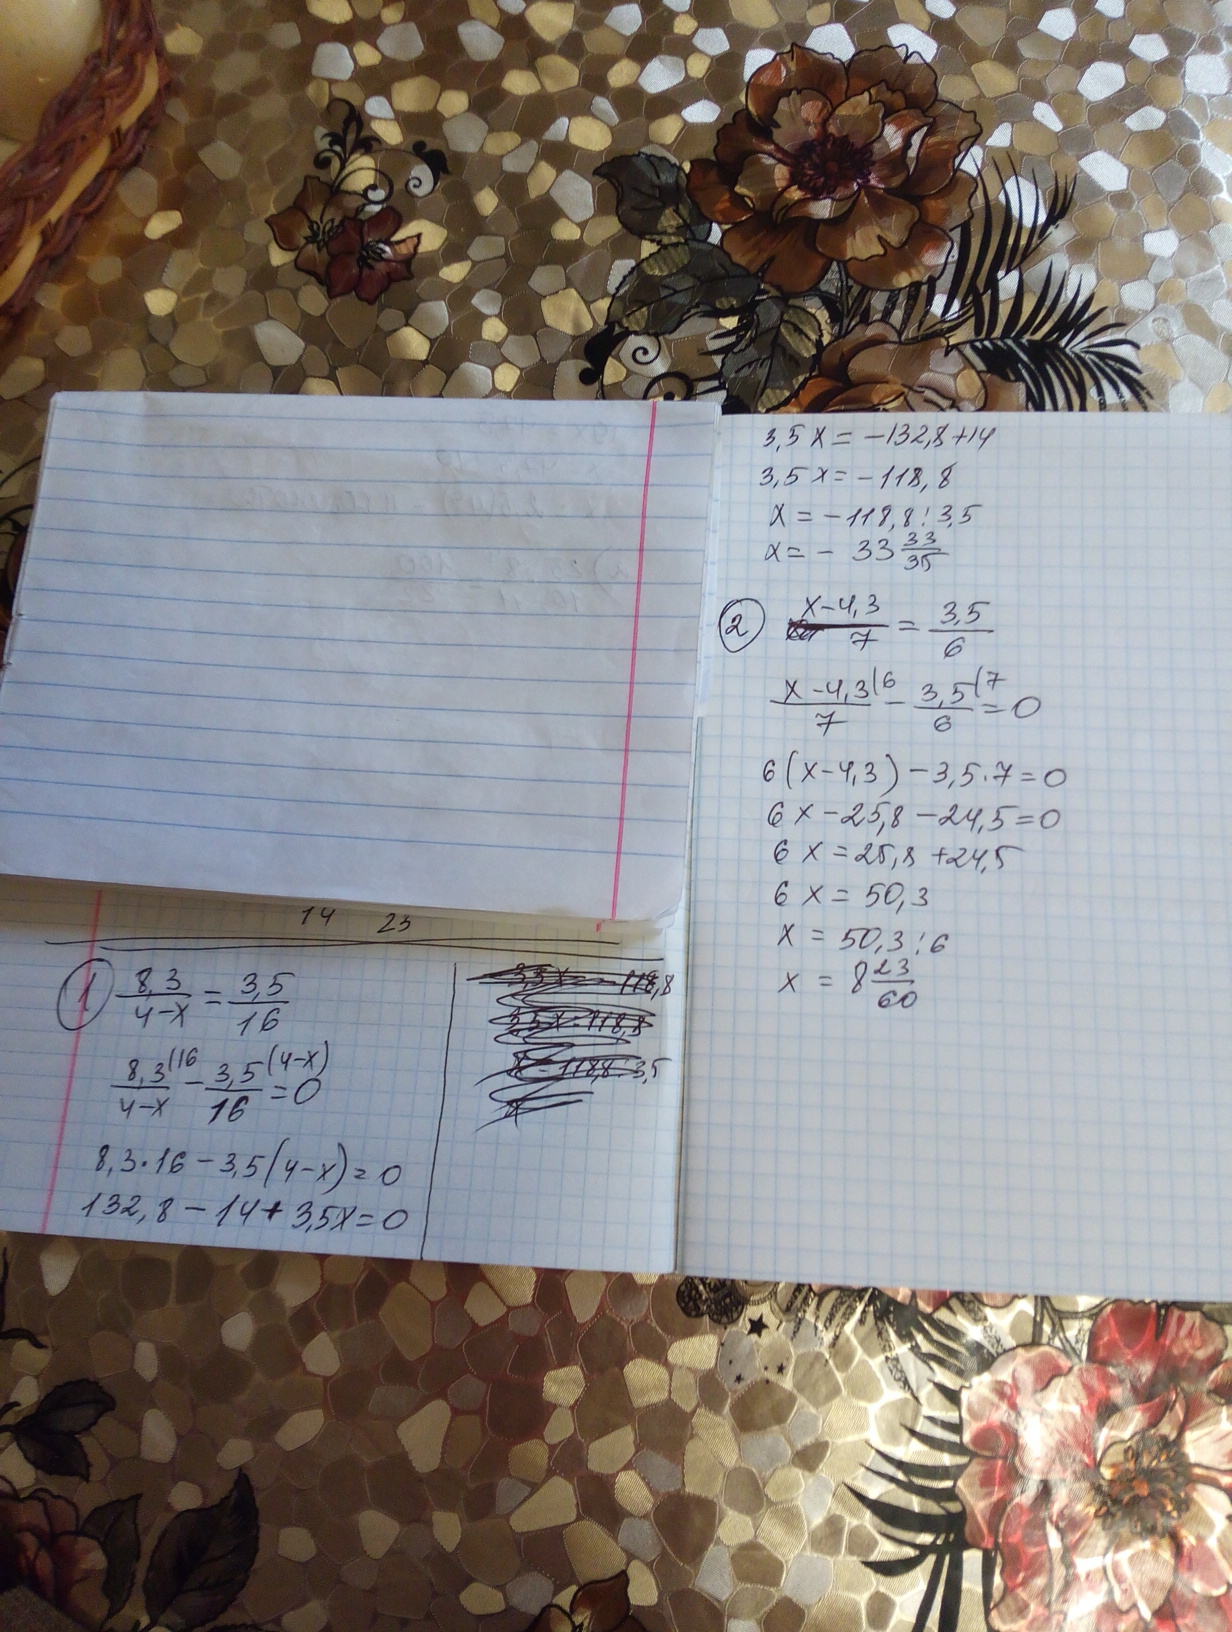 14 23
1 8,3/(4-x) = 3,5/16
8,3/(4-x) (16 - 3,5/16 (4-x) = 0
8,3·16 - 3,5(4-x) = 0
132,8 - 14 + 3,5x = 0
3,5x = -132,8+14
3,5x = -118,8
x = -118,8:3,5
x = - 33 33/35
2 (x-4,3)/7 = 3,5/6
(x-4,3)/7 (6 - 3,5/6 (7 = 0
6(x-4,3) - 3,5·7 = 0
6x - 25,8 - 24,5 = 0
6x = 25,8 + 24,5
6x = 50,3
x = 50,3:6
x = 8 23/60